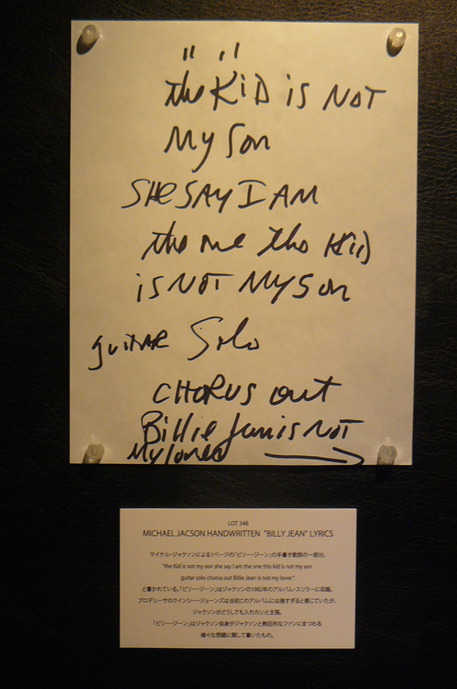 " "
the KiD is NOT
My Son
SHE SAY I AM
the one the Kid
is NOT My Son
guitar Solo
CHORUS out
Billie Jean is NOT
My lover
LOT 348
MICHAEL JACSON HANDWRITTEN "BILLY JEAN" LYRICS
マイケル・ジャクソンによる1ページの「ビリー・ジーン」の手書き歌詞の一部分。
"the Kid is not my son she say I am the one this kid is not my son
guitar solo chorus out Billie Jean is not my lover."
と書かれている。「ビリー・ジーン」はジャクソンの1982年のアルバム・スリラーに収録。
プロデューサのクインシー・ジョーンズは当初このアルバムには強すぎると感じていたが、
ジャクソンがどうしても入れたいと主張。
「ビリー・ジーン」はジャクソン自身がジャクソンと熱狂的なファンにまつわる
様々な問題に関して書いたもの。